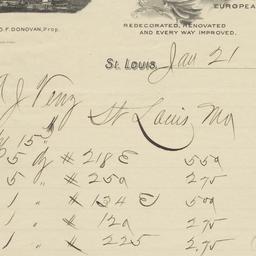 EUROPEA
O. F. DONOVAN, Prop.
REDECORATED, RENOVATED
AND EVERY WAY IMPROVED.
St. Louis, Jan 21
J
St Louis, Mo
15
5 Dz # 218 E 550
5 " # 25a 275
1 " # 134 E 500
1 " # 12a 275
1 " # 225 2.75